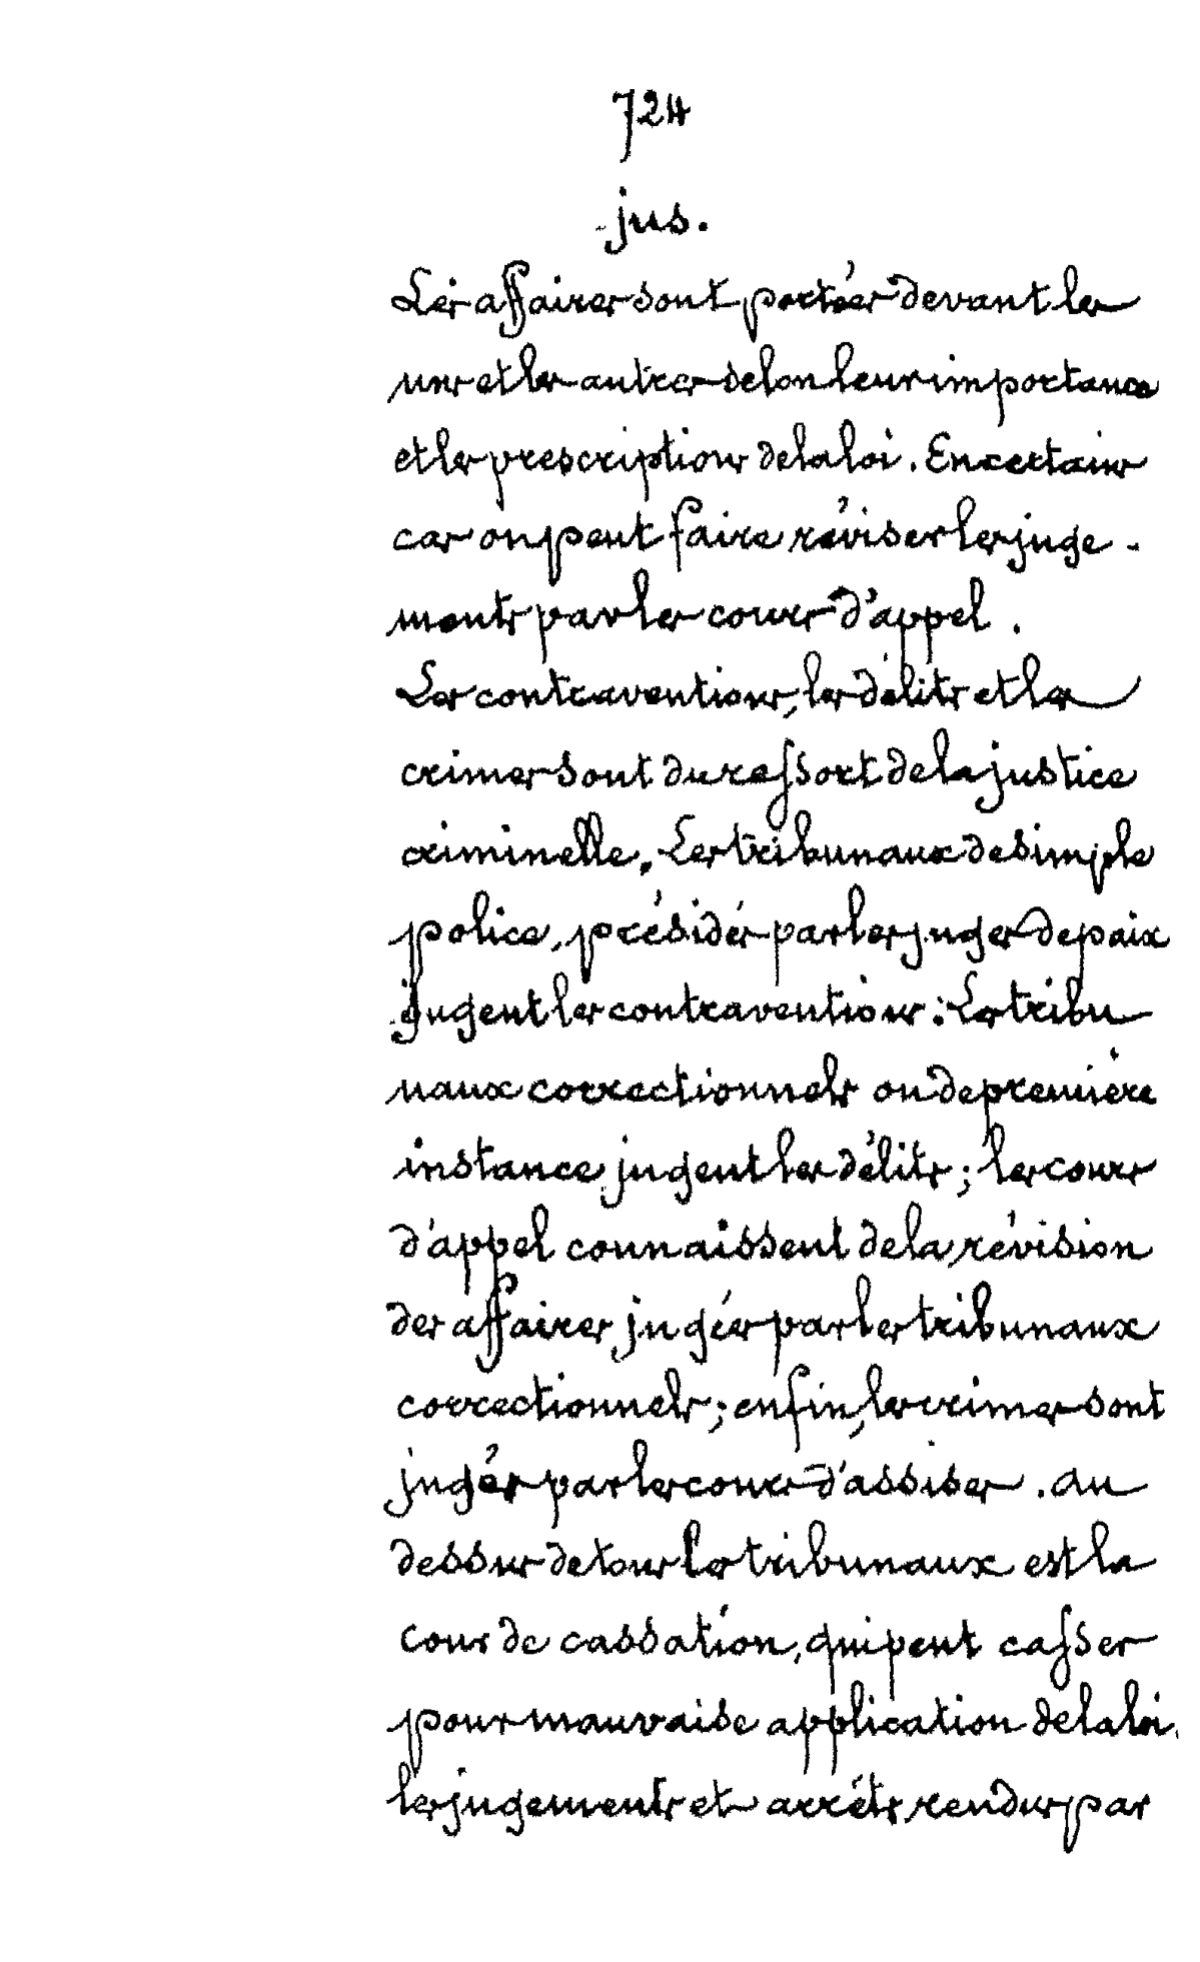 724
jus.
Les affaires sont portées devant les
uns et les autres selon leur importance
et les prescriptions de la loi. En certains
cas on peut faire réviser les juge-
ments par les cours d'appel.
Les contraventions, les délits et les
crimes sont du ressort de la justice
criminelle. Les tribunaux de simple
police, présidés par les juges de paix
jugent les contraventions : Les tribu
naux correctionnels ou de première
instance jugent les délits ; les cours
d'appel connaissent de la révision
des affaires jugées par les tribunaux
correctionnels ; enfin, les crimes sont
jugés par les cours d'assises. Au
dessus de tous les tribunaux est la
cour de cassation, qui peut casser
pour mauvaise application de la loi,
les jugements et arrêts rendus par